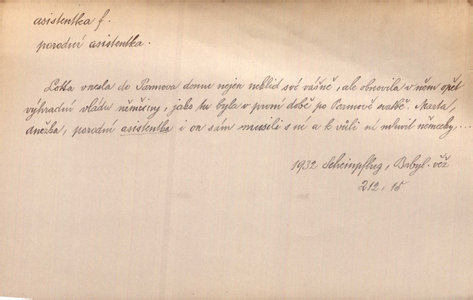 asistentka f.
porodní asistentka.
Lotka vnesla do Parmova domu nejen neklid své vášně, ale obnovila v něm opět
výhradní vládu němčiny, jako tu byla v první době po Parmově svatbě. Marta,
dneska, porodní asistentka i on sám musili s ní a k vůli ní mluvit německy...
1932 Scheinpflug, Babyl. věž
212, 15